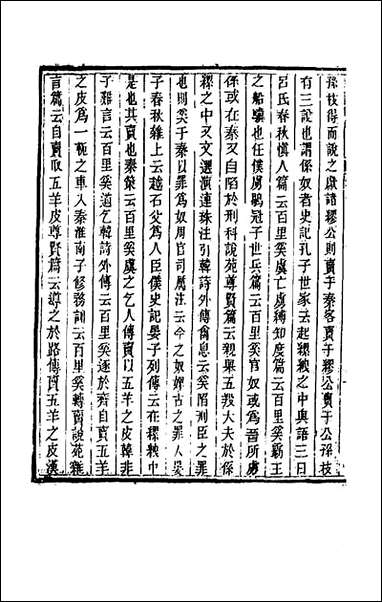 孫枝得而說之獻諸繆公則賣于秦客賣于繆公賣于公孫枝
有三說也謂係奴者史記孔子世家云起纍紲之中與語三日
呂氏春秋慎人篇云百里奚虞亡虜縛知度篇云百里奚霸王
之船驥也任僕虜鶡冠子世兵篇云百里奚官奴或為晉所虜
係或在秦又自陷於刑科說苑尊賢篇云親舉五羖大夫於係
縲之中又文選演連珠注引韓詩外傳禽息云奚陷刑臣之罪
也則奚于秦以罪為奴周官司厲注云今之奴婢古之罪人晏
子春秋雜上云越石父為人臣僕史記晏子列傳云在縲紲中
是也其賣也秦策云百里奚虞之乞人傳賣以五羊之皮韓非
子難言云百里奚道乞韓詩外傳云百里奚逐於齊自賣五羊
之皮為一軛之車入秦淮南子修務訓云百里奚轉鬻說苑雜
言篇云自賣取五羊皮尊賢篇云導之於路傳賣五羊之皮漢